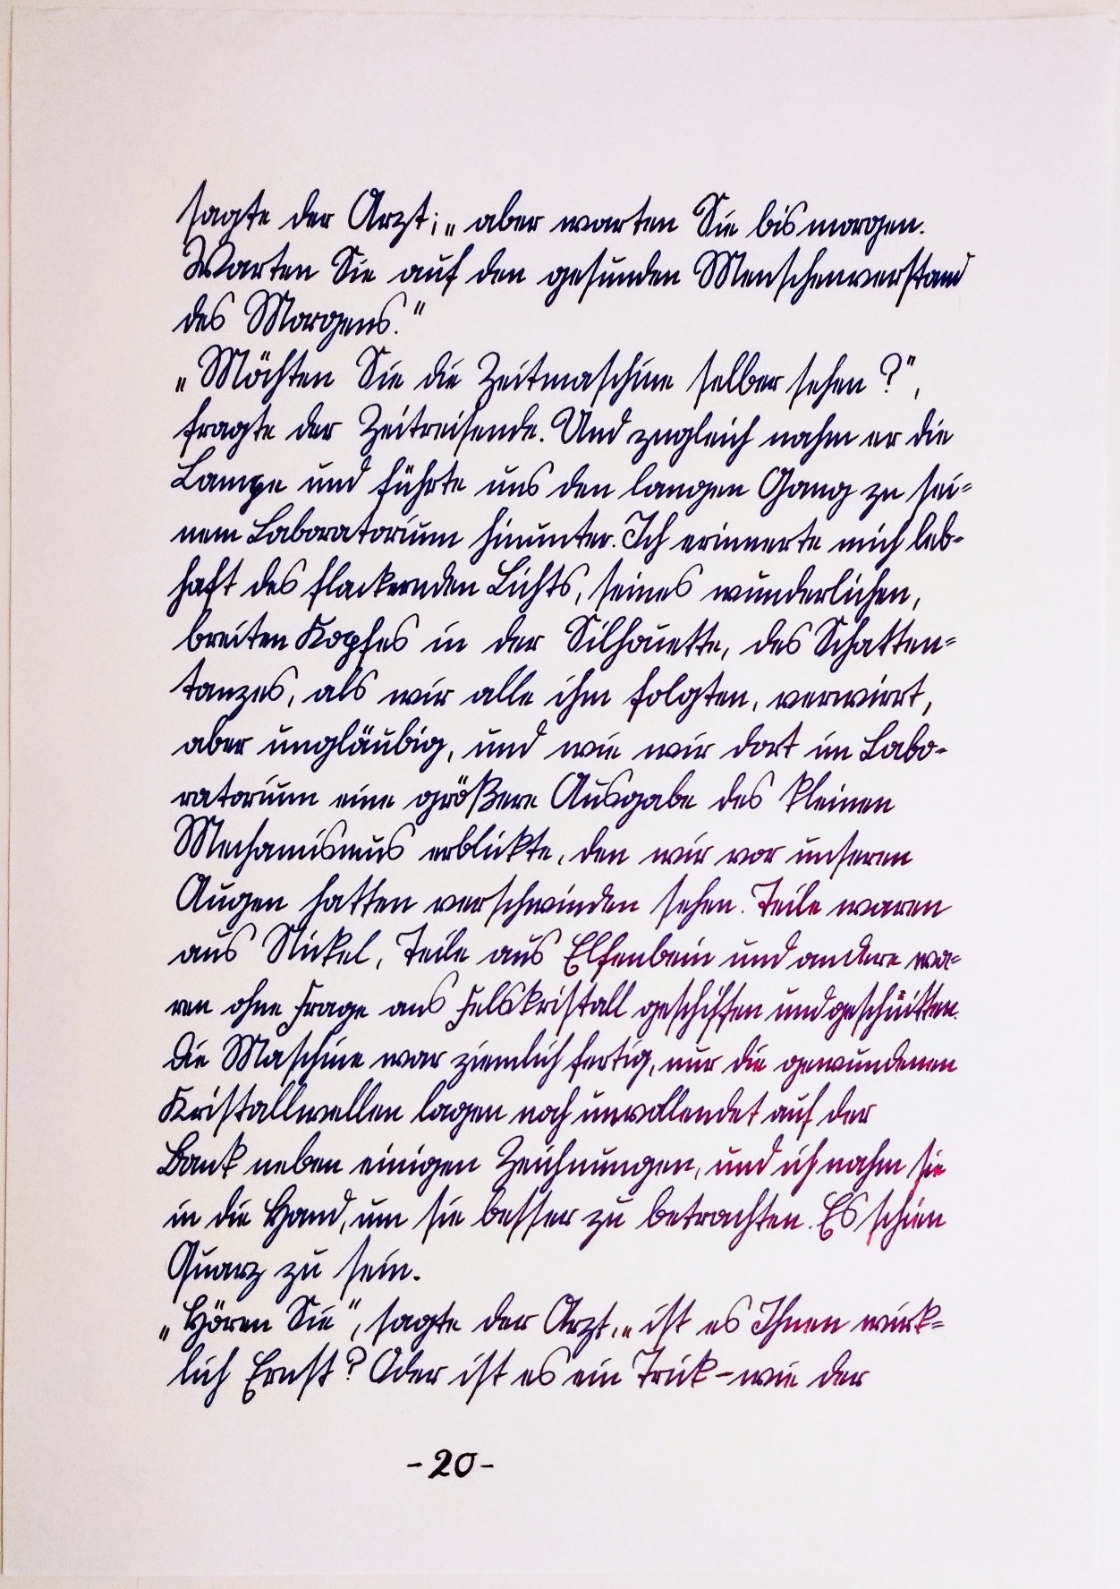 sagte der Arzt; „aber warten Sie bis morgen.
Warten Sie auf den gesunden Menschenverstand
des Morgens.“
„Möchten Sie die Zeitmaschine selber sehen?“,
fragte der Zeitreisende. Und zugleich nahm er die
Lampe und führte uns den langen Gang zu sei=
nem Laboratorium hinunter. Ich erinnerte mich leb=
haft des flackernden Lichts, seines wunderlichen,
breiten Kopfes in der Silhouette, des Schatten=
tanzes, als wir alle ihm folgten, verwirrt,
aber ungläubig, und wie wir dort im Labo=
ratorium eine größere Ausgabe des kleinen
Mechanismus erblickte, den wir vor unseren
Augen hatten verschwinden sehen. Teile waren
aus Nickel, Teile aus Elfenbein und andere wa=
ren ohne Frage aus Felskristall geschiffen und geschnitten.
Die Maschine war ziemlich fertig, nur die gewundenen
Kristallwellen lagen noch unvollendet auf der
Bank neben einigen Zeichnungen, und ich nahm sie
in die Hand, um sie besser zu betrachten. Es schien
Quarz zu sein.
„Hören Sie“, sagte der Arzt, „ist es Ihnen wirk=
lich Ernst? Oder ist es ein Trick – wie der
-20-